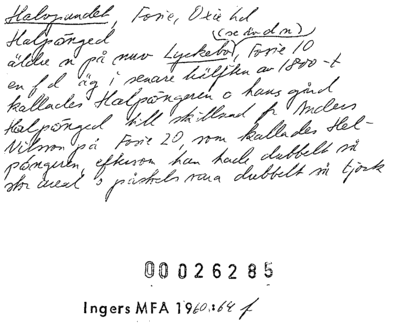 Halvpundet, Fosie, Oxie hd
Halpånged (se dv d n)
äldre n på nuv Lyckebo, Fosie 10
en f d äg i senare hälften av 1800-t
kallades Halpångeren o hans gård
Halpånged till skillnad fr Anders
Nilsson på Fosie 20, som kallades Hel-
pångeren, eftersom han hade dubbelt så
stor areal o påstods vara dubbelt så tjock
00026285
Ingers MFA 1960:64 f